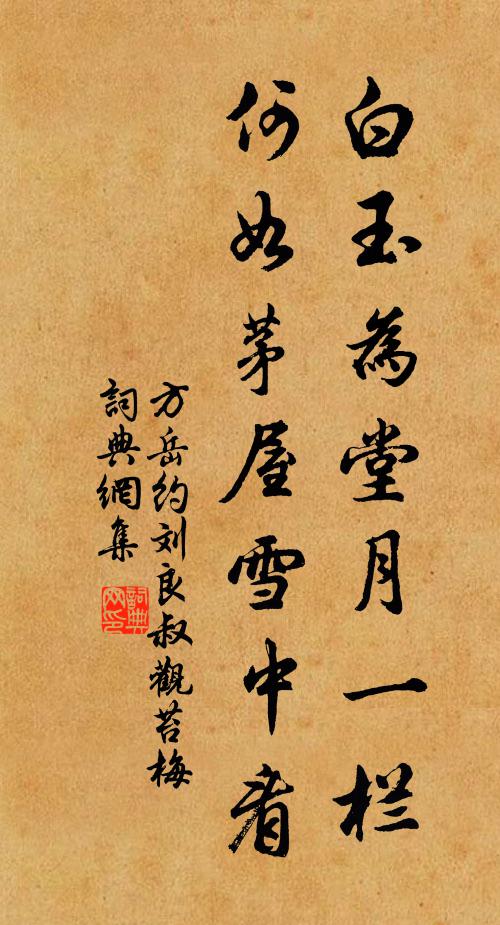 白玉為堂月一栏
何如茅屋雪中看
方岳约刘良叔觀苔梅
詞典網集
詞典网印